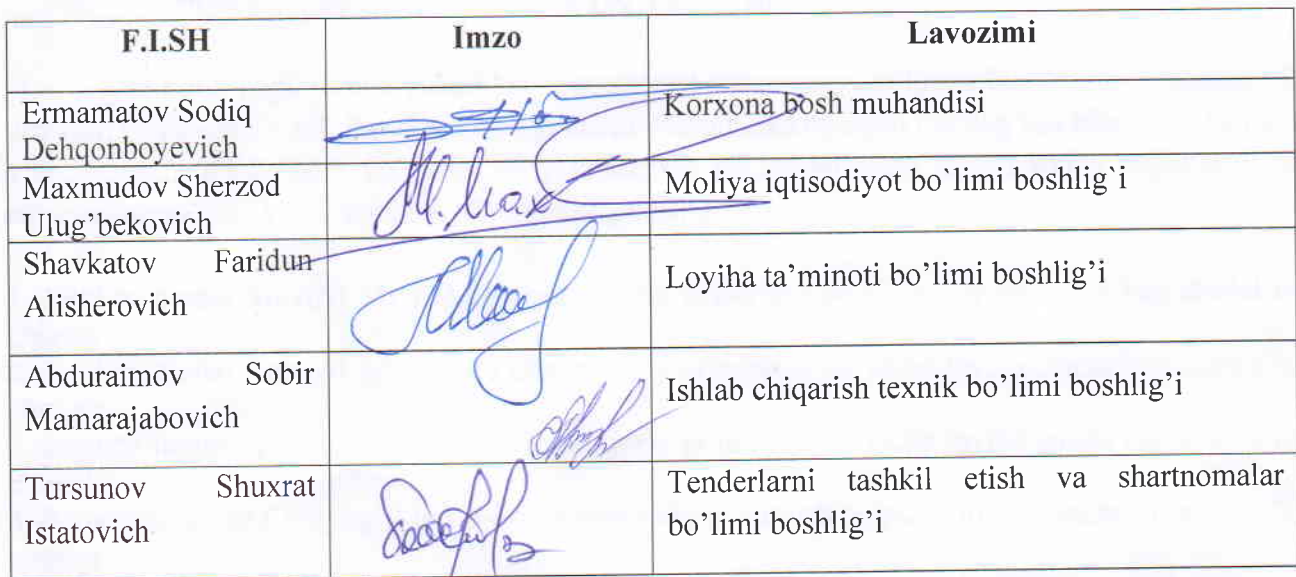 F.I.SH Imzo Lavozimi
Ermamatov Sodiq
Dehqonboyevich
Korxona bosh muhandisi
Maxmudov Sherzod
Ulug’bekovich
Moliya iqtisodiyot bo`limi boshlig`i
Shavkatov Faridun
Alisherovich
Loyiha ta’minoti bo’limi boshlig’i
Abduraimov Sobir
Mamarajabovich
Ishlab chiqarish texnik bo’limi boshlig’i
Tursunov Shuxrat
Istatovich
Tenderlarni tashkil etish va shartnomalar
bo’limi boshlig’i